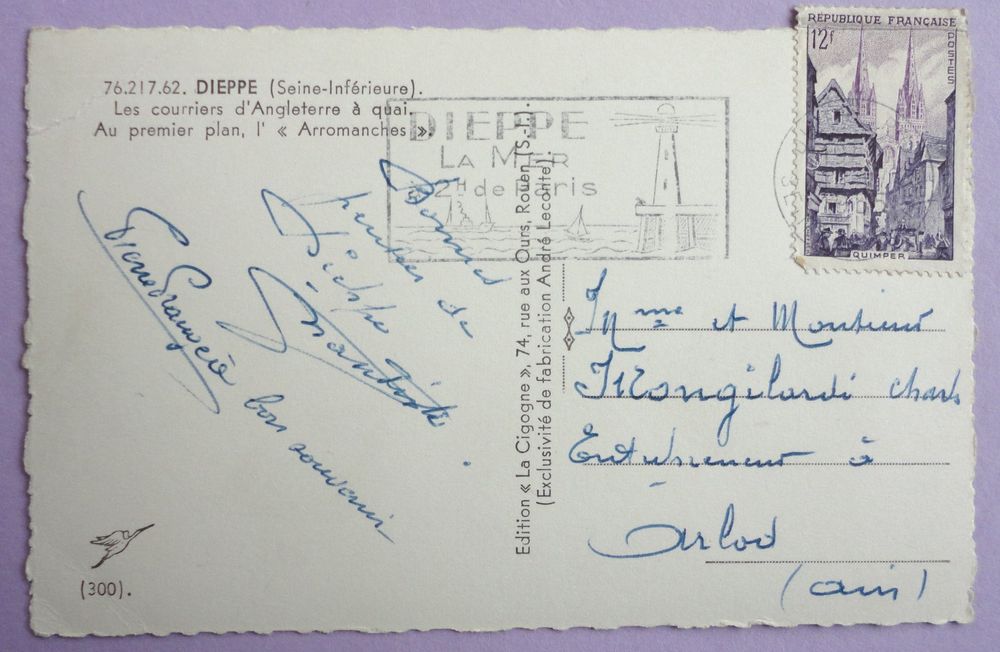 76.217.62. DIEPPE (Seine-Inférieure).
Les courriers d'Angleterre à quai.
Au premier plan, l' « Arromanches ».
DIEPPE
LA MER
2H de Paris
RÉPUBLIQUE FRANÇAISE
12f
POSTES
QUIMPER
Bonnes
pensées de
Dieppe
bon souvenir
Edition « La Cigogne », 74, rue aux Ours, Rouen (S.-I.).
(Exclusivité de fabrication André Leconte).
Mme et Monsieur
Mongilardi Charles
Entrepreneur à
Arlod
(Ain)
(300).